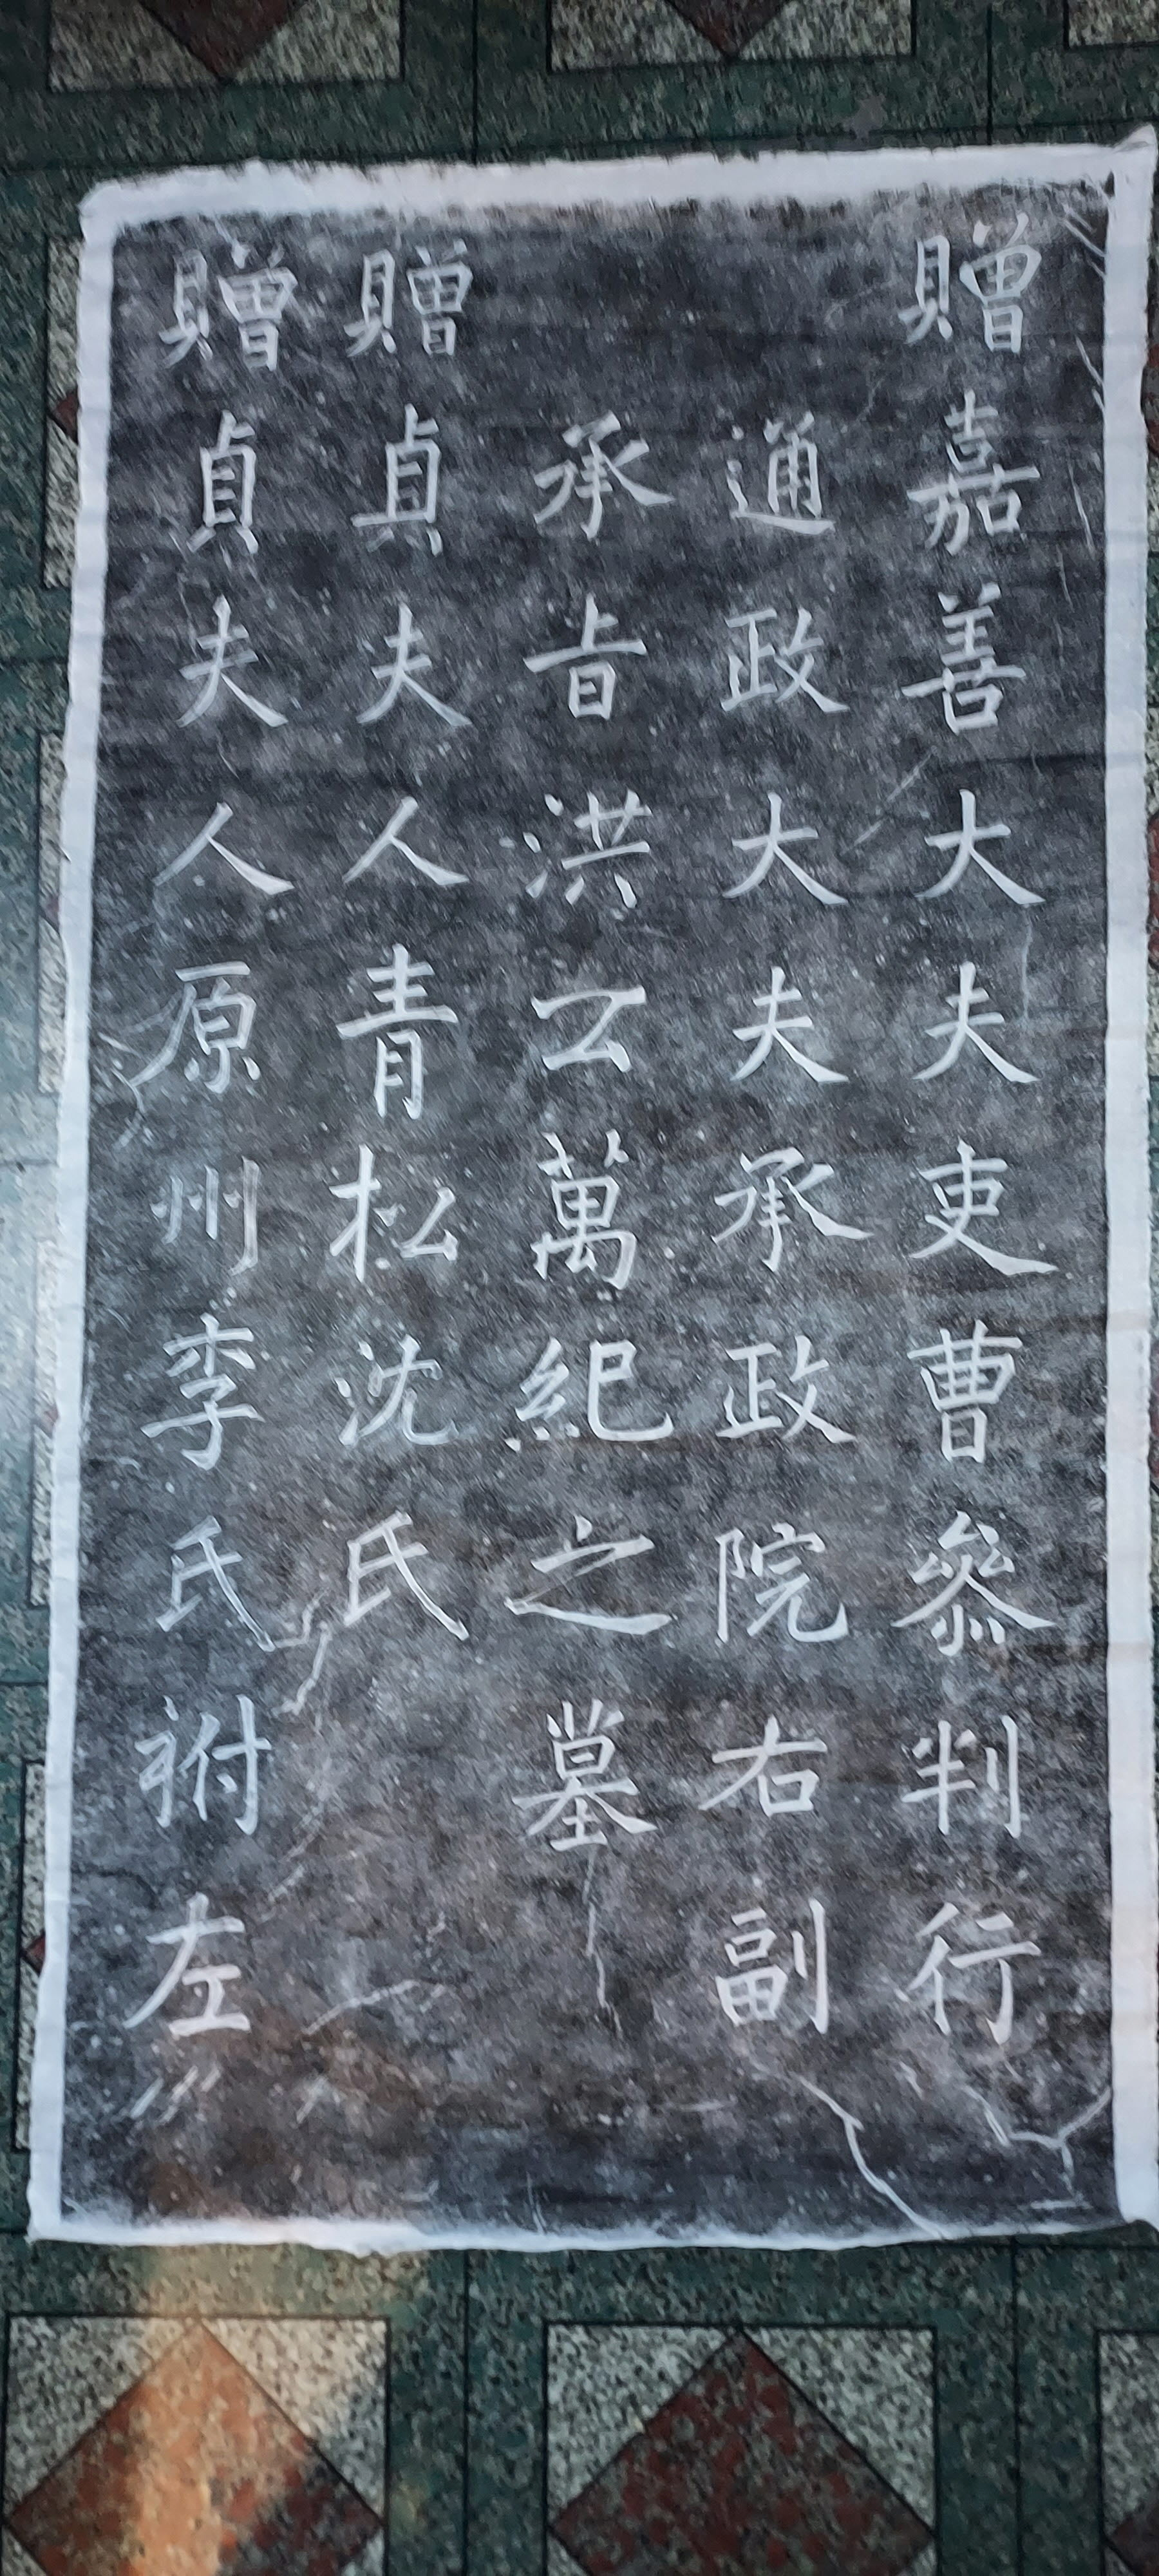 贈嘉善大夫吏曹參判行
通政大夫承政院右副
承旨洪公萬紀之墓
贈貞夫人青松沈氏
贈貞夫人原州李氏祔左